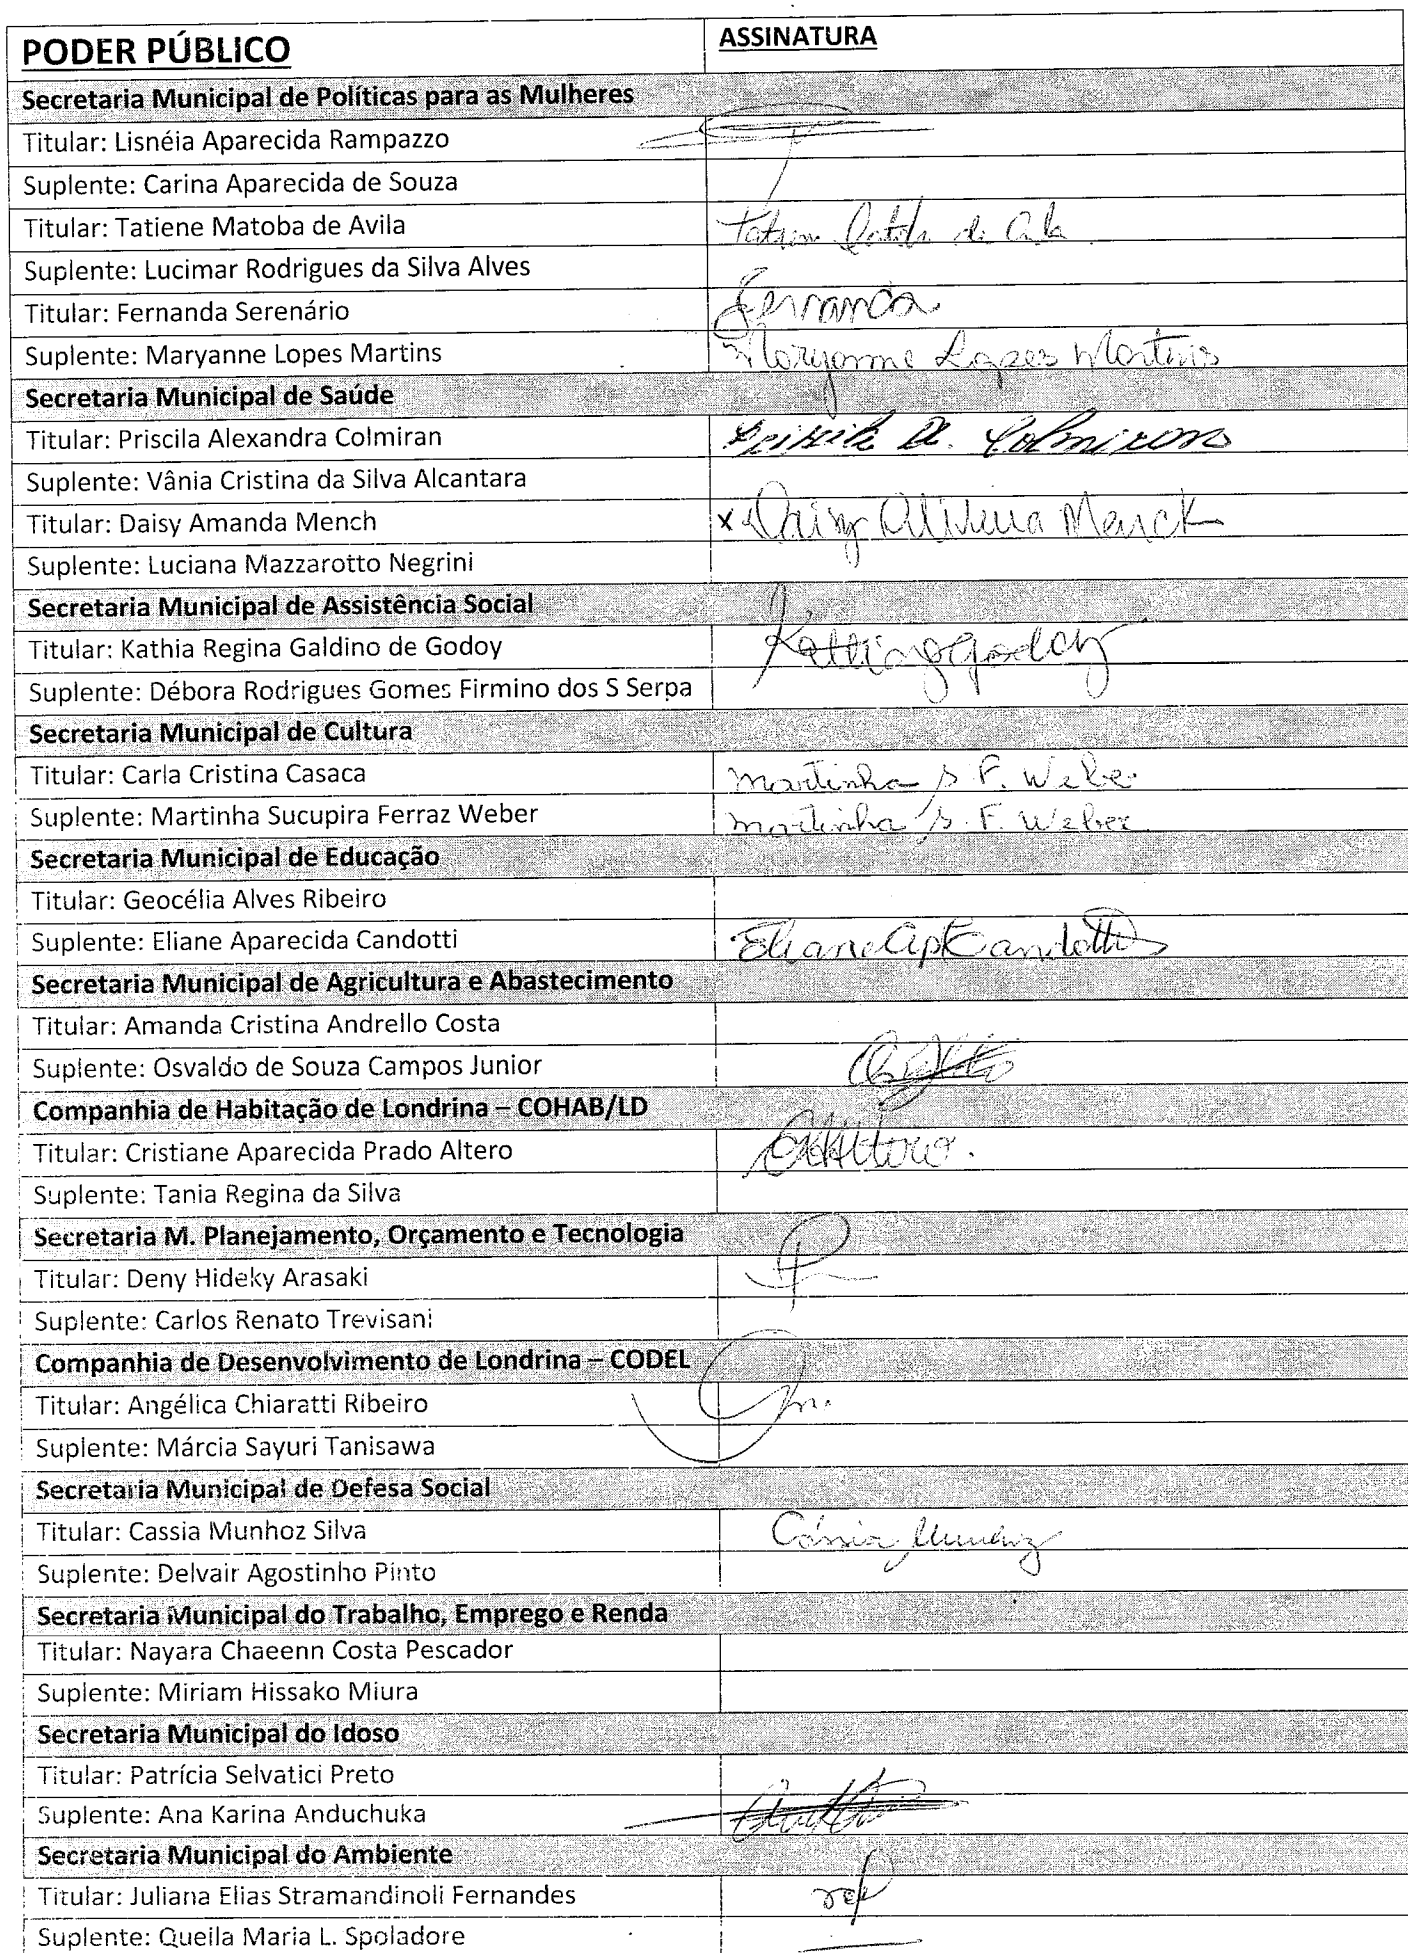 PODER PÚBLICO
ASSINATURA
Secretaria Municipal de Políticas para as Mulheres
Titular: Lisnéia Aparecida Rampazzo
Suplente: Carina Aparecida de Souza
Titular: Tatiene Matoba de Avila
Suplente: Lucimar Rodrigues da Silva Alves
Titular: Fernanda Serenário
Fernanda
Suplente: Maryanne Lopes Martins
Maryanne Lopes Martins
Secretaria Municipal de Saúde
Titular: Priscila Alexandra Colmiran
Priscila A. Colmiran
Suplente: Vânia Cristina da Silva Alcantara
Titular: Daisy Amanda Mench
x Daisy Menck
Suplente: Luciana Mazzarotto Negrini
Secretaria Municipal de Assistência Social
Titular: Kathia Regina Galdino de Godoy
Suplente: Débora Rodrigues Gomes Firmino dos S Serpa
Secretaria Municipal de Cultura
Titular: Carla Cristina Casaca
Martinha S. F. Weber
Suplente: Martinha Sucupira Ferraz Weber
Martinha S. F. Weber
Secretaria Municipal de Educação
Titular: Geocélia Alves Ribeiro
Suplente: Eliane Aparecida Candotti
Eliane Ap Candotti
Secretaria Municipal de Agricultura e Abastecimento
Titular: Amanda Cristina Andrello Costa
Suplente: Osvaldo de Souza Campos Junior
Companhia de Habitação de Londrina – COHAB/LD
Titular: Cristiane Aparecida Prado Altero
Suplente: Tania Regina da Silva
Secretaria M. Planejamento, Orçamento e Tecnologia
Titular: Deny Hideky Arasaki
Suplente: Carlos Renato Trevisani
Companhia de Desenvolvimento de Londrina – CODEL
Titular: Angélica Chiaratti Ribeiro
Suplente: Márcia Sayuri Tanisawa
Secretaria Municipal de Defesa Social
Titular: Cassia Munhoz Silva
Cássia Munhoz
Suplente: Delvair Agostinho Pinto
Secretaria Municipal do Trabalho, Emprego e Renda
Titular: Nayara Chaeenn Costa Pescador
Suplente: Miriam Hissako Miura
Secretaria Municipal do Idoso
Titular: Patrícia Selvatici Preto
Suplente: Ana Karina Anduchuka
Secretaria Municipal do Ambiente
Titular: Juliana Elias Stramandinoli Fernandes
Suplente: Queila Maria L. Spoladore